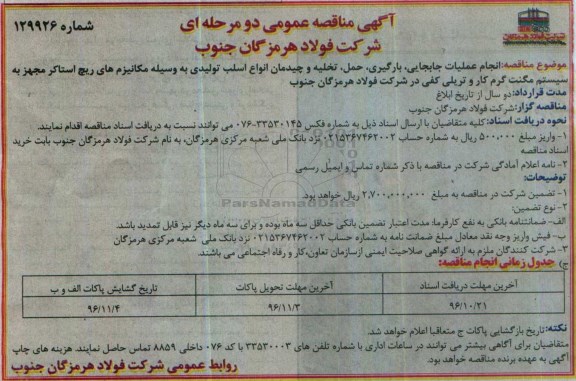 آگهی مناقصه عمومی دو مرحله ای
شرکت فولاد هرمزگان جنوب
شماره ۱۲۹۹۲۶
موضوع مناقصه:انجام عملیات جابجایی، بارگیری، حمل، تخلیه و چیدمان انواع اسلب تولیدی به وسیله مکانیزم های ریچ استاکر مجهز به
سیستم مگنت گرم کار و تریلی کفی در شرکت فولاد هرمزگان جنوب
مدت قرارداد:دو سال از تاریخ ابلاغ
مناقصه گزار:شرکت فولاد هرمزگان جنوب
نحوه دریافت اسناد: کلیه متقاضیان با ارسال اسناد ذیل به شماره فکس ۳۳۵۳۰۱۴۵-۰۷۶ می توانند نسبت به دریافت اسناد مناقصه اقدام نمایند.
۱- واریز مبلغ ۵۰۰,۰۰۰ ریال به شماره حساب ۰۲۱۵۳۶۷۴۶۲۰۰۲ نزد بانک ملی شعبه مرکزی هرمزگان، به نام شرکت فولاد هرمزگان جنوب بابت خرید
اسناد مناقصه
۲- نامه اعلام آمادگی شرکت در مناقصه با ذکر شماره تماس و ایمیل رسمی
توضیحات:
۱- تضمین شرکت در مناقصه به مبلغ ۲,۷۰۰,۰۰۰,۰۰۰ ریال خواهد بود.
۲- نوع تضمین:
الف- ضمانتنامه بانکی به نفع کارفرما: مدت اعتبار تضمین بانکی حداقل سه ماه بوده و برای سه ماه دیگر نیز قابل تمدید باشد.
ب- فیش واریز وجه نقد معادل مبلغ ضمانت نامه به شماره حساب ۰۲۱۵۳۶۷۴۶۲۰۰۲ نزد بانک ملی شعبه مرکزی هرمزگان
۳- شرکت کنندگان ملزم به ارائه گواهی صلاحیت ایمنی ازسازمان تعاون،کار و رفاه اجتماعی می باشند.
ج) جدول زمانی انجام مناقصه:
آخرین مهلت دریافت اسناد
آخرین مهلت تحویل پاکات
تاریخ گشایش پاکات الف و ب
۹۶/۱۰/۲۱
۹۶/۱۱/۳
۹۶/۱۱/۴
نکته:تاریخ بازگشایی پاکات ج متعاقبا اعلام خواهد شد.
متقاضیان برای آگاهی بیشتر می توانند در ساعات اداری با شماره تلفن های ۳۳۵۳۰۰۰۳ با کد ۰۷۶ داخلی ۸۸۵۹ تماس حاصل نمایند. هزینه های چاپ
آگهی به عهده برنده مناقصه خواهد بود.
روابط عمومی شرکت فولاد هرمزگان جنوب
ParsNamadData